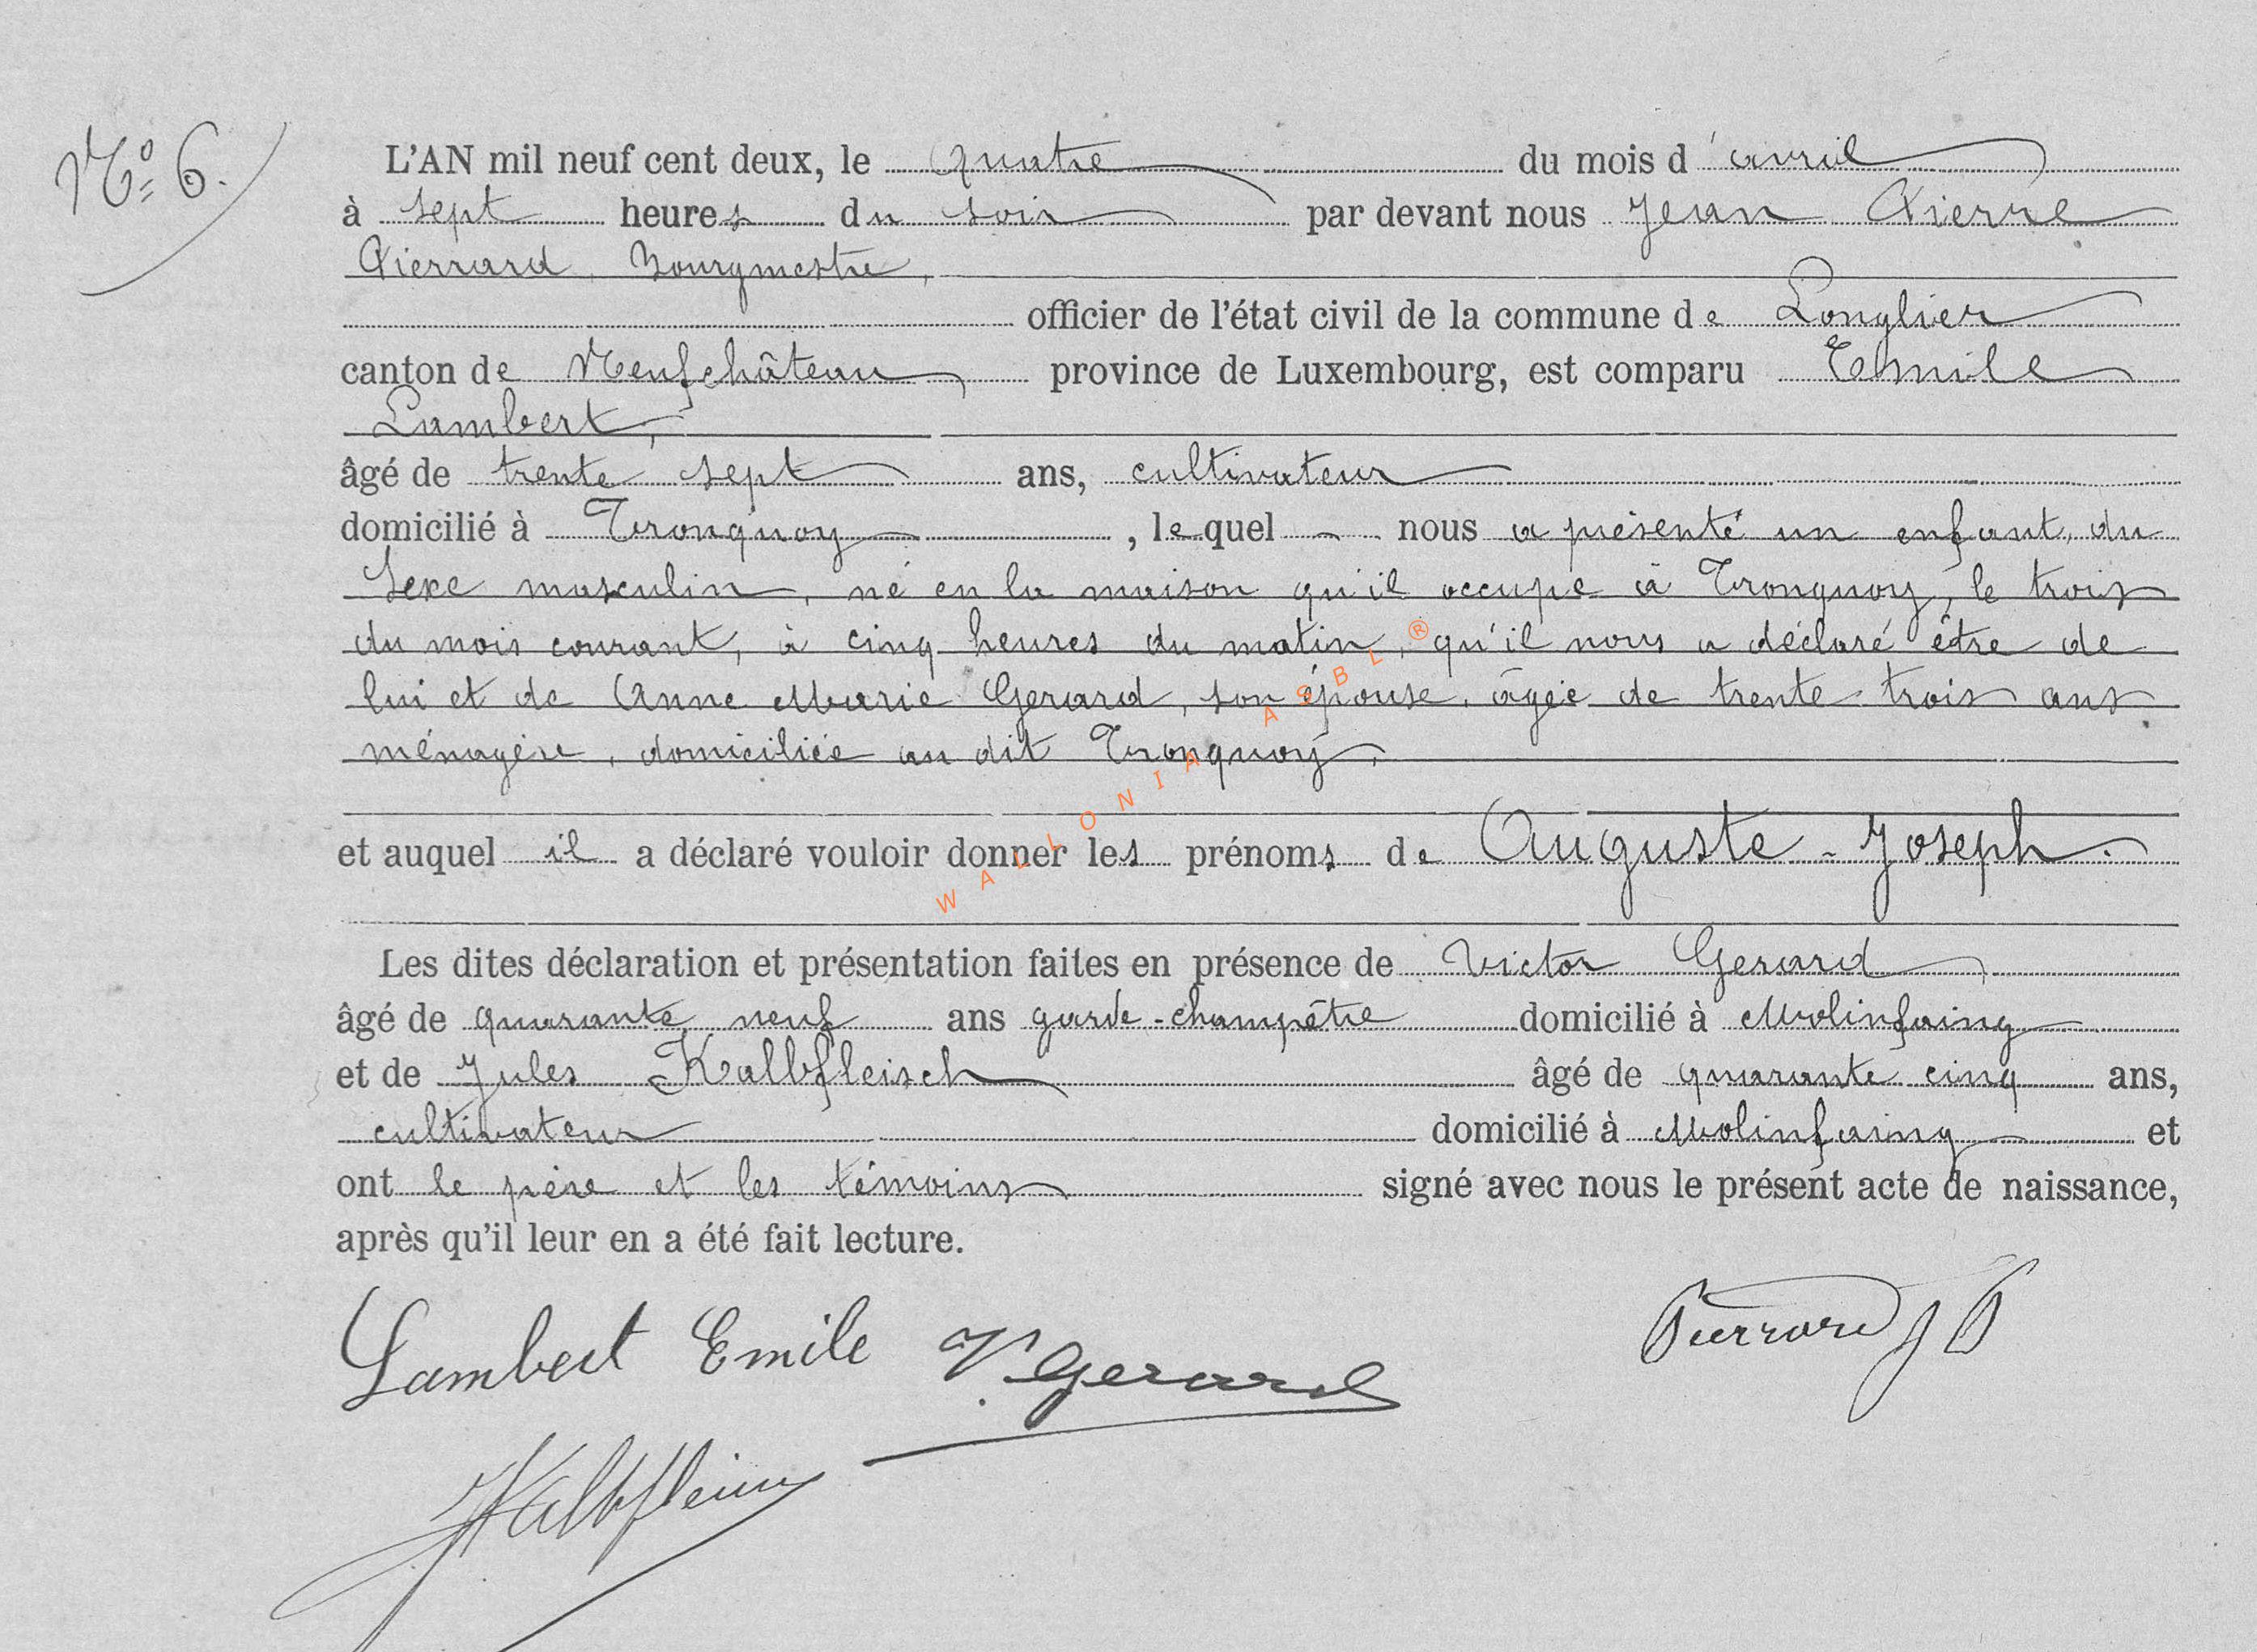 Nº 6.
L'AN mil neuf cent deux, le quatre du mois d'avril
à sept heures du soir par devant nous Jean Pierre
Pierrard, Bourgmestre,
officier de l'état civil de la commune de Longlier
canton de Neufchâteau province de Luxembourg, est comparu Emile
Lambert,
âgé de trente sept ans, cultivateur
domicilié à Tronquoy, lequel nous a présenté un enfant, du
sexe masculin, né en la maison qu'il occupe à Tronquoy, le trois
du mois courant, à cinq heures du matin, qu'il nous a déclaré être de
lui et de Anne Marie Gerard, son épouse, âgée de trente-trois ans
ménagère, domiciliée au dit Tronquoy,
et auquel il a déclaré vouloir donner les prénoms de Auguste-Joseph.
Les dites déclaration et présentation faites en présence de Victor Gerard
âgé de quarante neuf ans garde-champêtre domicilié à Molinfaing
et de Jules Kalbfleisch âgé de quarante cinq ans,
cultivateur domicilié à Molinfaing et
ont le père et les témoins signé avec nous le présent acte de naissance,
après qu'il leur en a été fait lecture.
Lambert Emile V. Gerard Pierrard J P
JKalbfleisch
WALLONIA ASBL ®